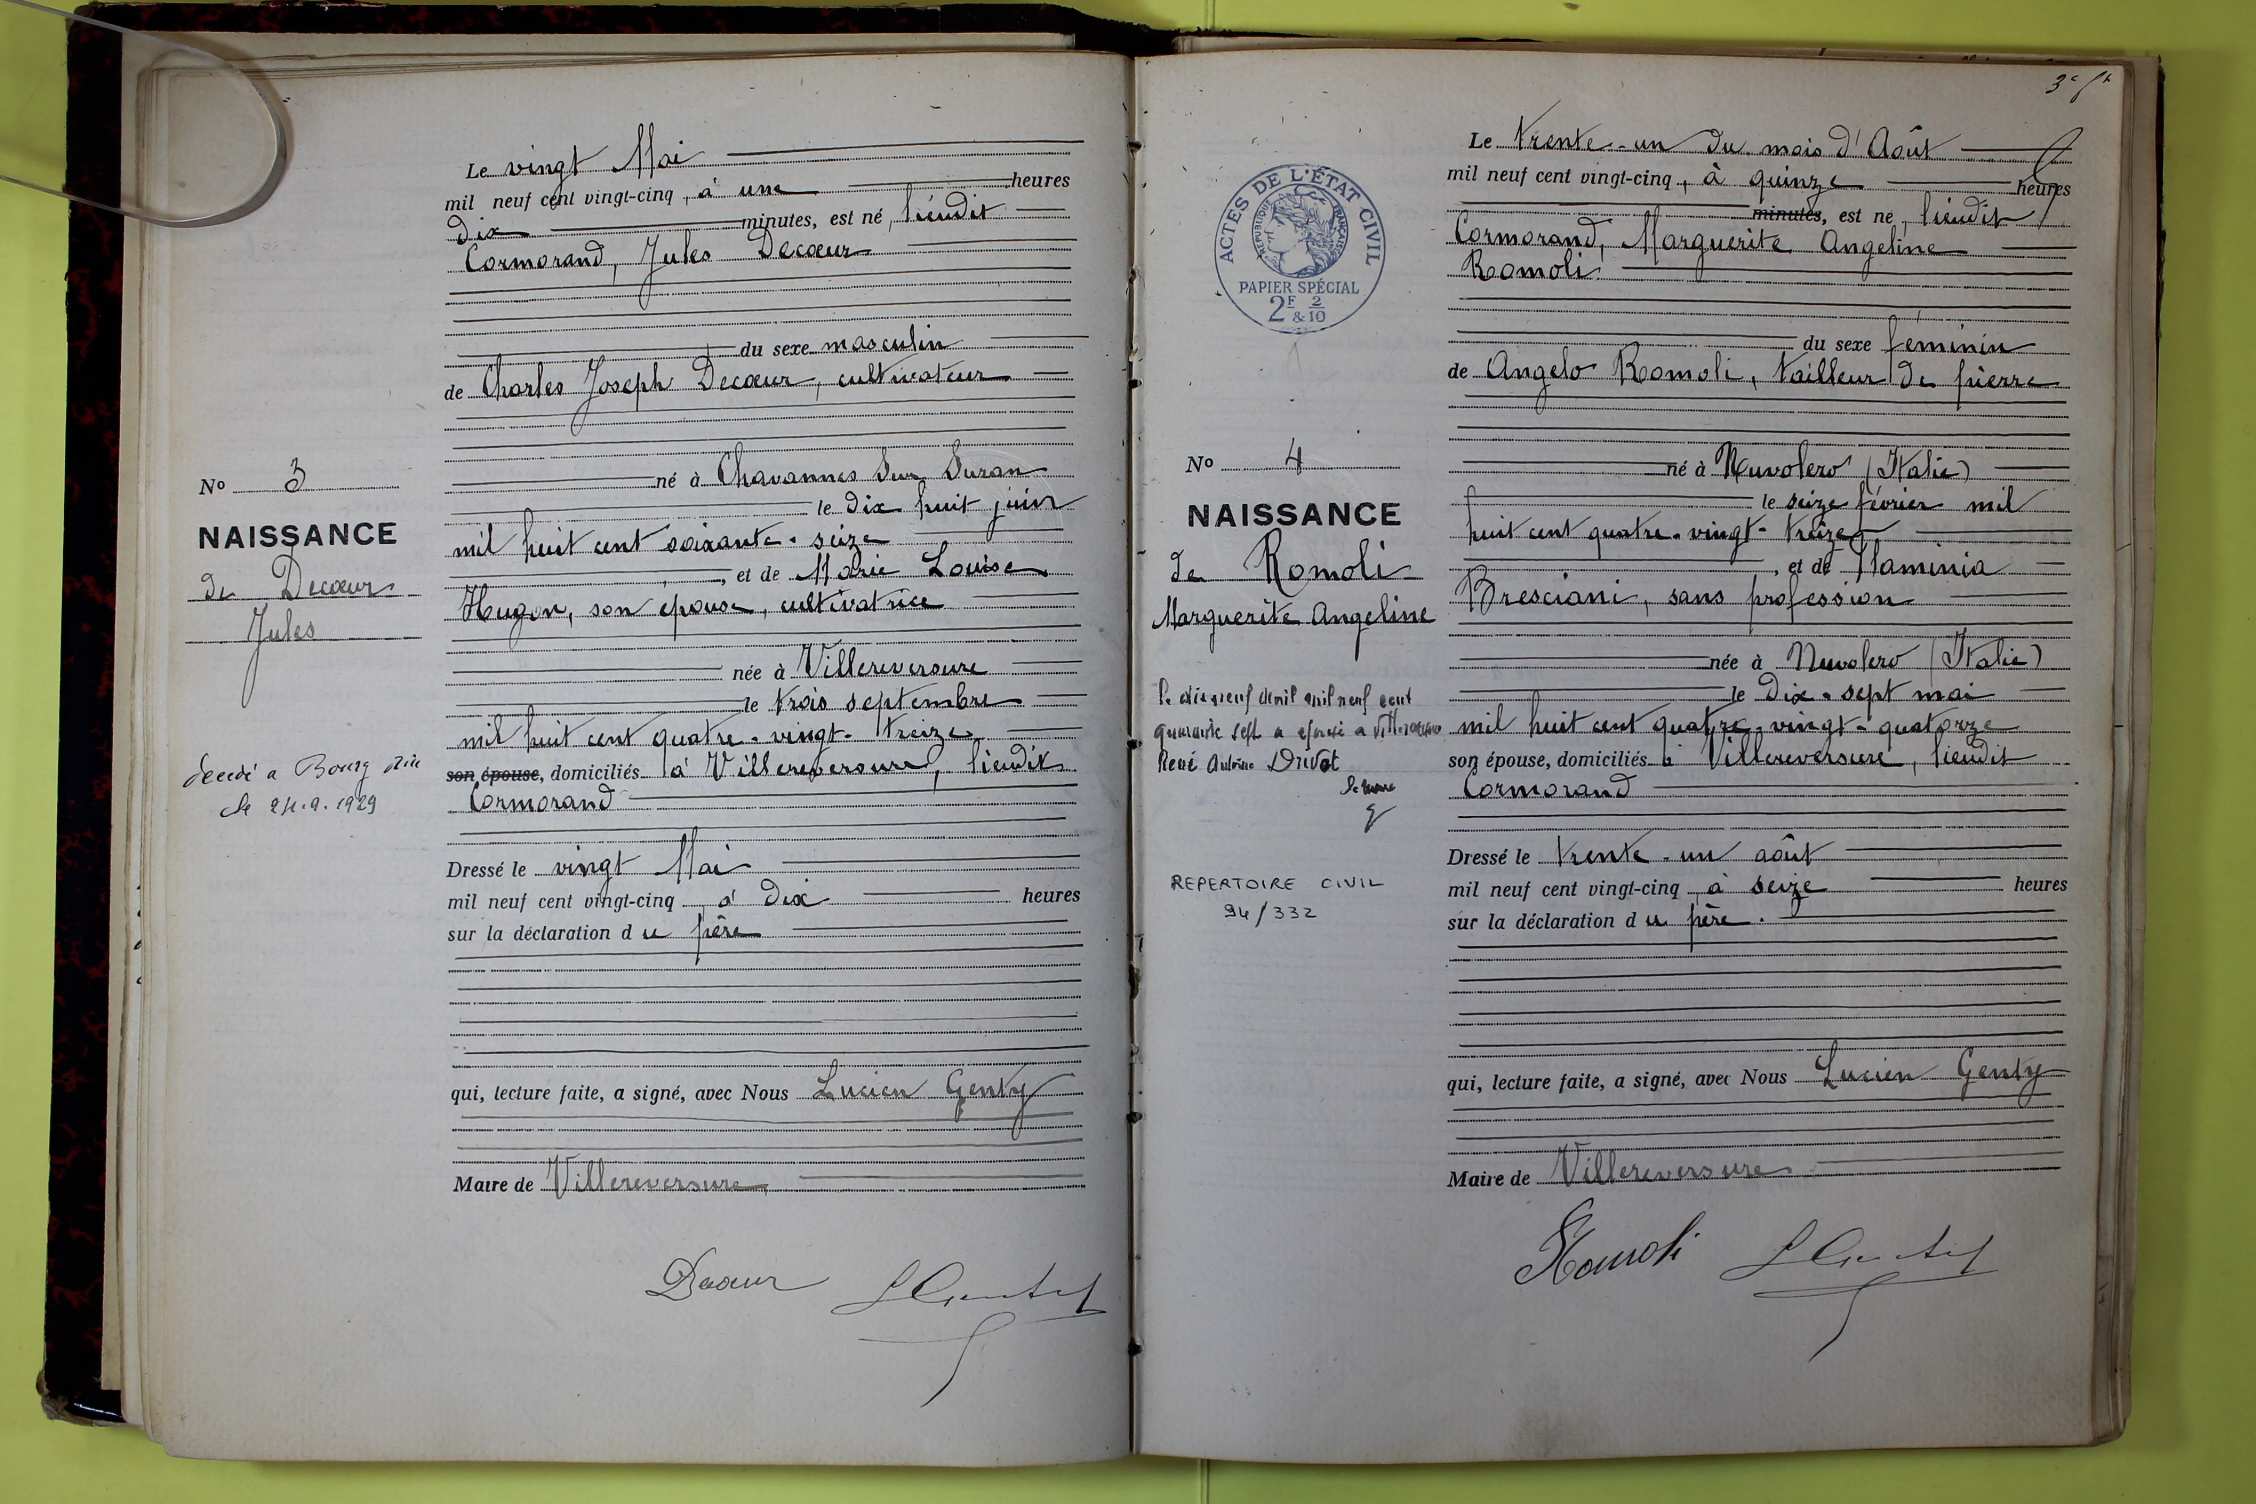 Le vingt Mai
mil neuf cent vingt-cinq, à une heures
dix minutes, est né, lieudit
Cormorand, Jules Decœur
du sexe masculin
de Charles Joseph Decœur, cultivateur
né à Chavannes Sur Suran
le dix huit juin
mil huit cent soixante-seize
, et de Marie Louise
Hugon, son epouse, cultivatrice
née à Villereversure
le trois septembre
mil huit cent quatre-vingt-treize
son épouse, domiciliés à Villereversure, lieudit
Cormorand
Dressé le vingt Mai
mil neuf cent vingt-cinq à dix heures
sur la déclaration du père
qui, lecture faite, a signé, avec Nous Lucien Genty
Maire de Villereversure
Decœur
No 3
NAISSANCE
de Decœur
Jules
décédé a Bourg
le 24.9.1929
3e
ACTES DE L'ÉTAT CIVIL
RÉPUBLIQUE FRANÇAISE
PAPIER SPÉCIAL
2F & 2/10
No 4
NAISSANCE
de Romoli
Marguerite Angeline
le dix neuf avril mil neuf cent
quarante sept a épousé à Villereversure
René Antoine Druot
le maire
REPERTOIRE CIVIL
94/332
Le trente-un du mois d'Août
mil neuf cent vingt-cinq, à quinze heures
minutes, est né, lieudit
Cormorand, Marguerite Angeline
Romoli
du sexe féminin
de Angelo Romoli, tailleur de pierre
né à Nuvolero (Italie)
le seize février mil
huit cent quatre-vingt-treize
, et de Flaminia
Bresciani, sans profession
née à Nuvolero (Italie)
le dix-sept mai
mil huit cent quatre-vingt-quatorze
son épouse, domiciliés à Villereversure, lieudit
Cormorand
Dressé le trente-un août
mil neuf cent vingt-cinq à seize heures
sur la déclaration du père.
qui, lecture faite, a signé, avec Nous Lucien Genty
Maire de Villereversure
Romoli